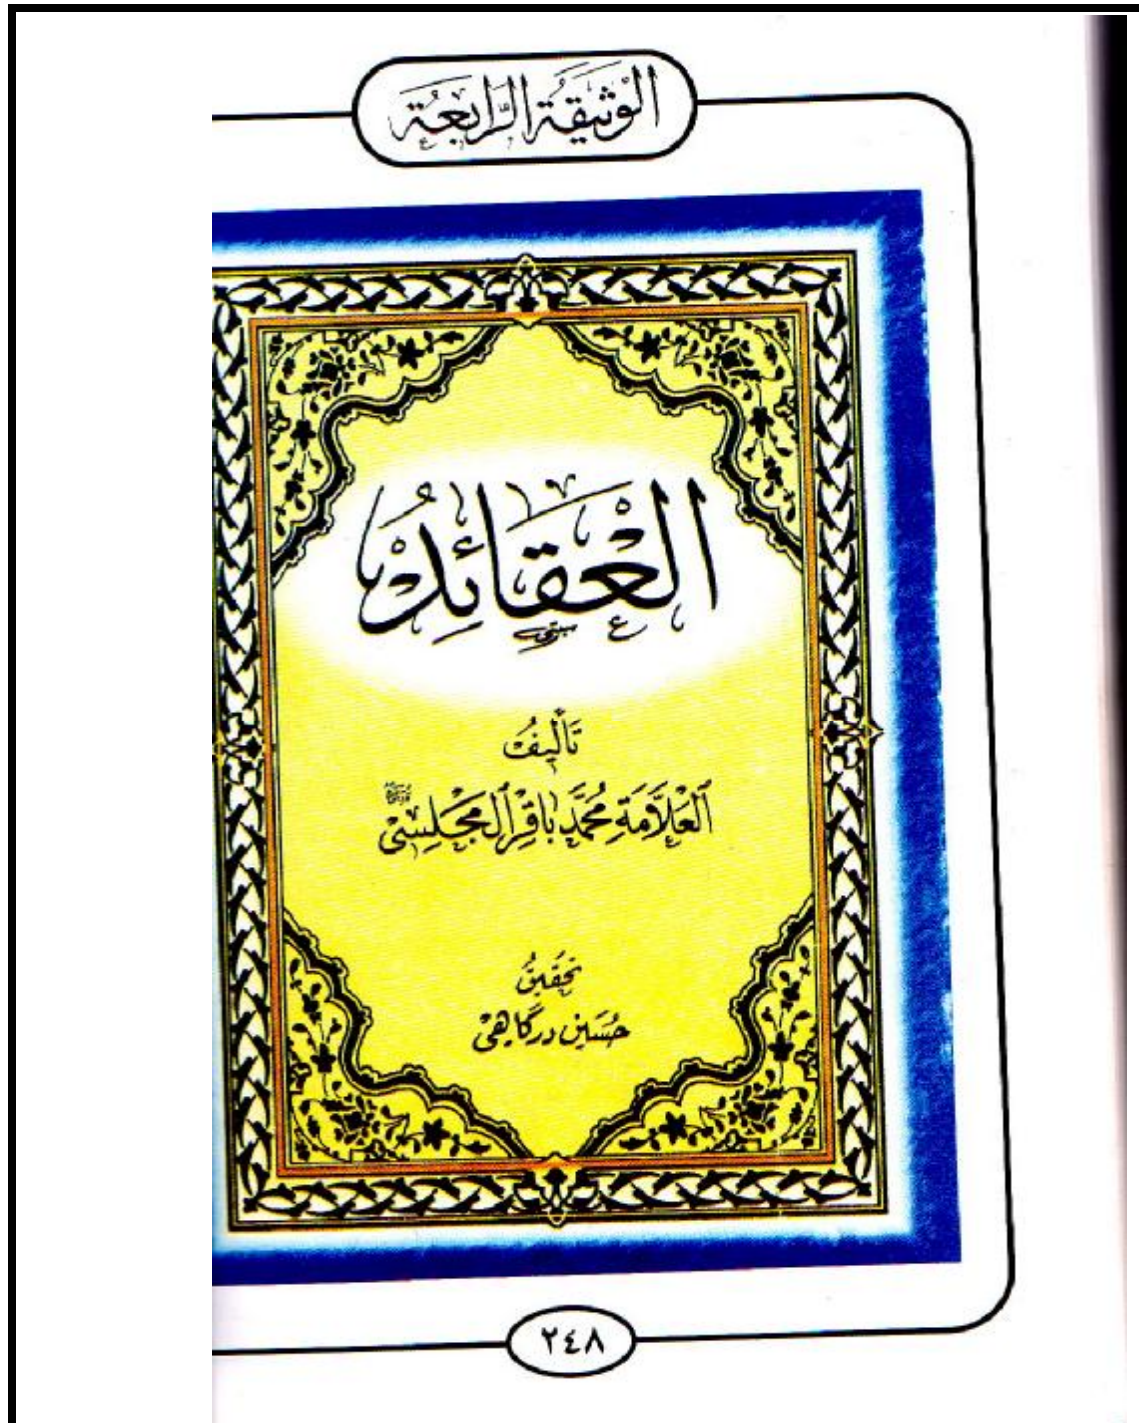 الوَثِيقَةُ الرَّابِعَةُ
العْقَائِدُ
تَأليفُ
اَلعَلَّامَةِ مُحَمَّد بَاقِر اَلمَجْلِسِيّ
تَحقيقُ
حُسَين دَرگاهِي
٢٤٨